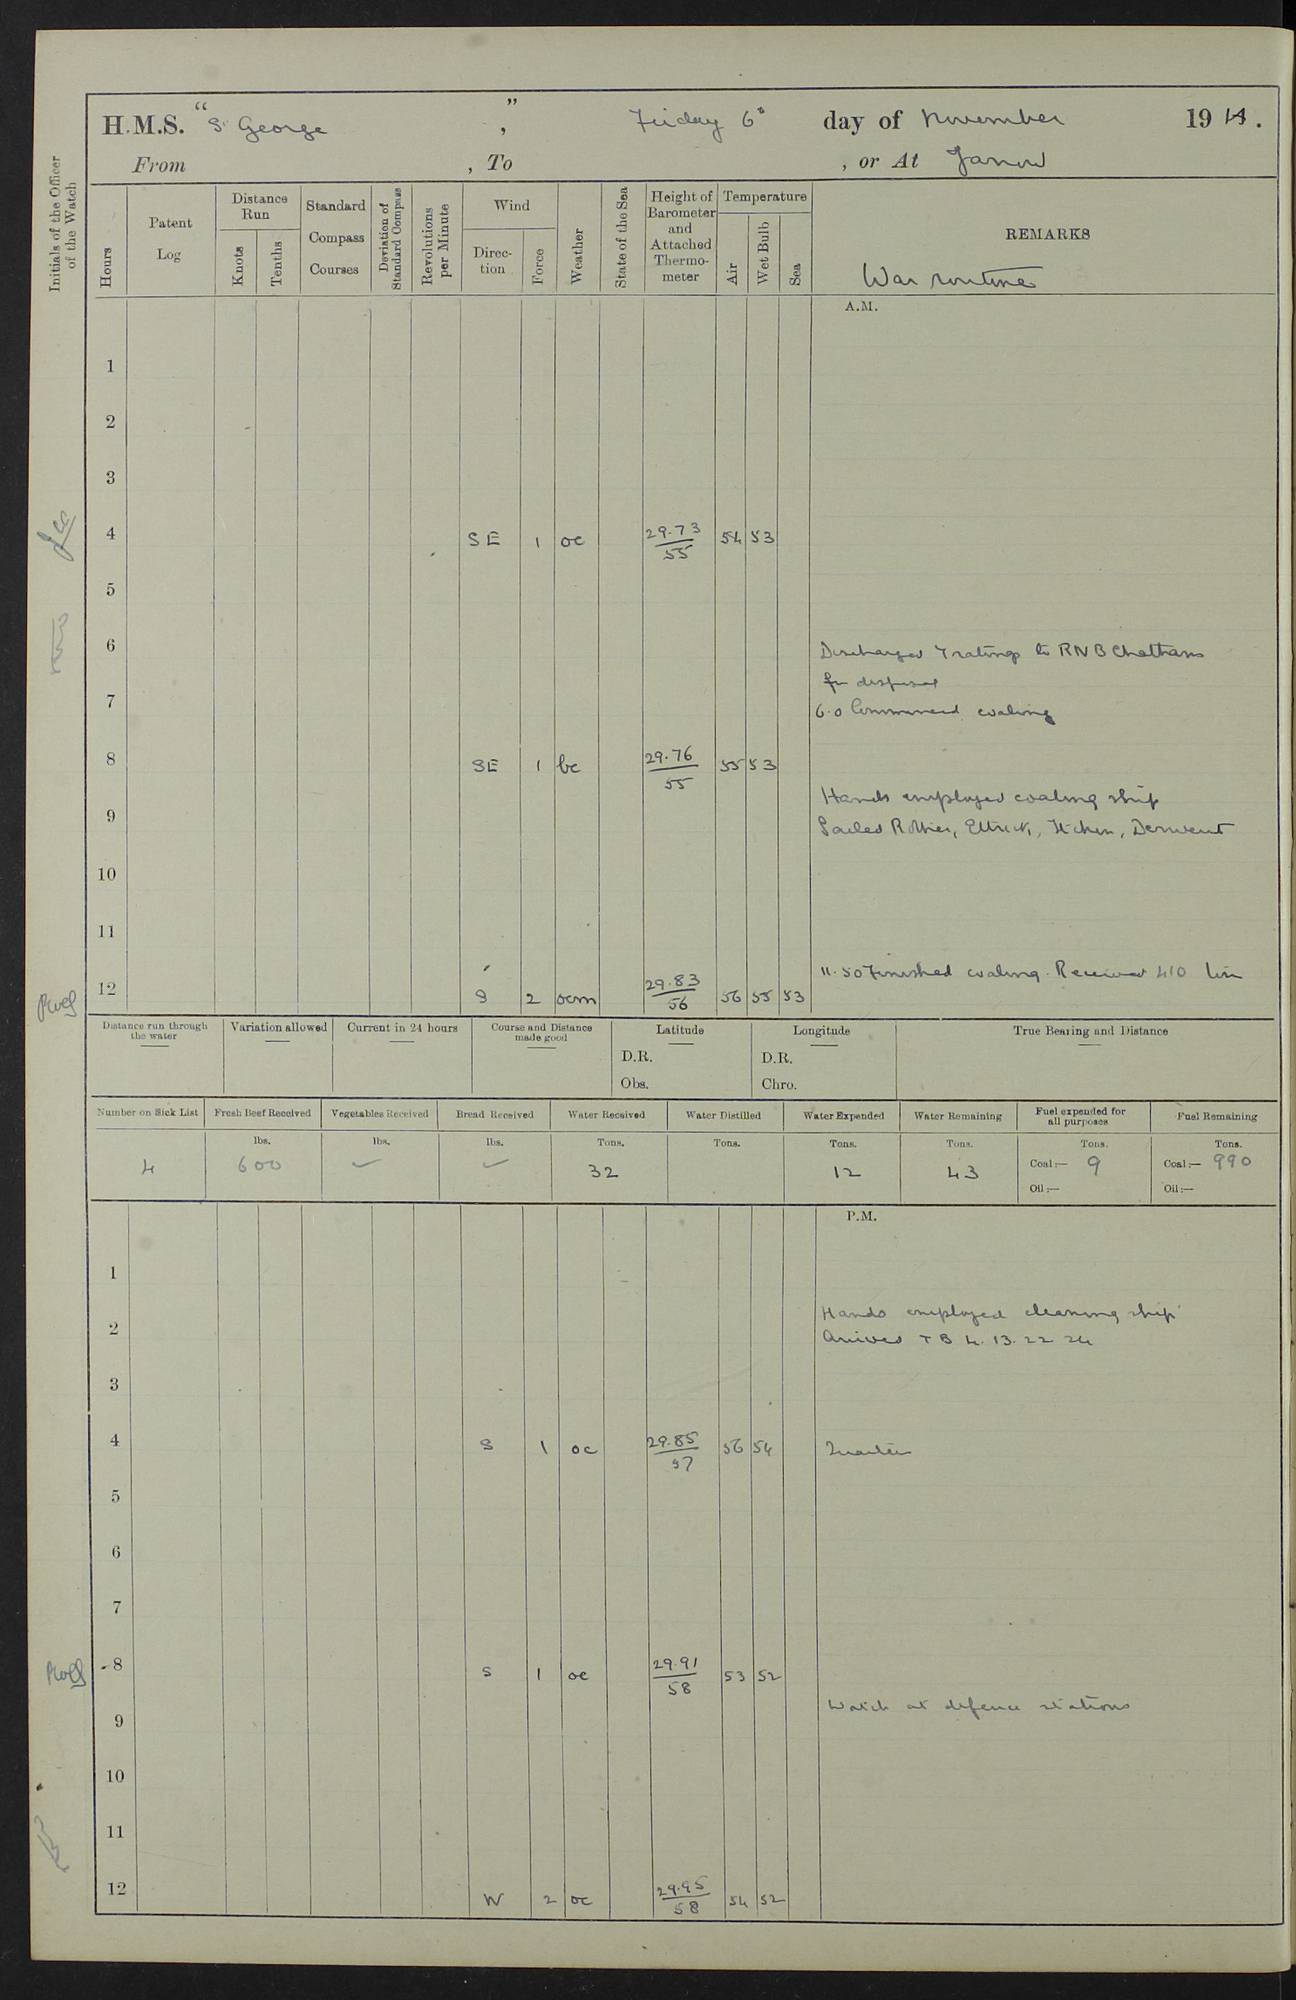 H.M.S. "St George", Friday 6th day of November 1914.
From , To , or At Jarrow
Initials of the Officer of the Watch
Hours
Patent Log
Distance Run
Knots
Tenths
Standard Compass Courses
Deviation of Standard Compass
Revolutions per Minute
Wind
Direc-tion
Force
Weather
State of the Sea
Height of Barometer and Attached Thermo-meter
Temperature
Air
Wet Bulb
Sea
REMARKS
War routine
A.M.
1
2
3
4 SE 1 oc 29.73 55 54 53
5
6 Discharged 7 ratings to RNB Chatham
for disposal
7
6.0 Commenced coaling
8 SE 1 bc 29.76 55 55 53
Hands employed coaling ship
9
Sailed Rother, Ettrick, Itchen, Derwent
10
11
11.50 Finished coaling. Received 410 tons
12 S 2 ocm 29.83 56 56 55 53
Distance run through the water
Variation allowed
Current in 24 hours
Course and Distance made good
Latitude
D.R.
Obs.
Longitude
D.R.
Chro.
True Bearing and Distance
Number on Sick List
Fresh Beef Received
Vegetables Received
Bread Received
Water Received
Water Distilled
Water Expended
Water Remaining
Fuel expended for all purposes
Fuel Remaining
lbs. lbs. lbs. Tons. Tons. Tons. Tons. Tons. Tons.
4 600 32 12 43 Coal:— 9 Coal:— 990
Oil:— Oil:—
P.M.
1
Hands employed cleaning ship
2
Arrived TB 4. 13. 22 24
3
4 S 1 oc 29.85 57 56 54 Quarters
5
6
7
8 S 1 oc 29.91 58 53 52
Watch at defence stations
9
10
11
12 W 2 oc 29.95 58 54 52